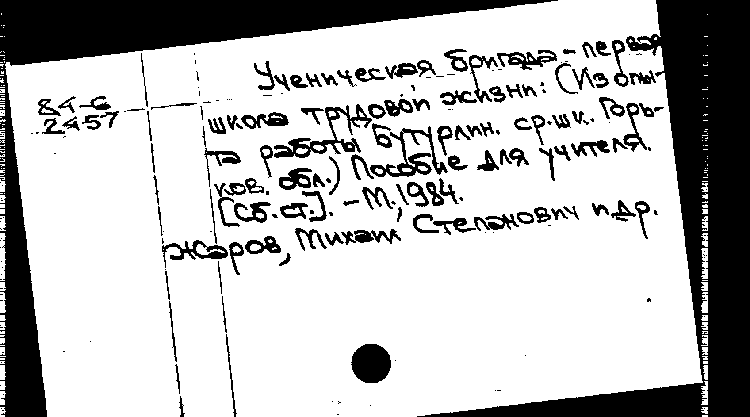 84-6
2457
Ученическая бригада - первая
школа трудовой жизни: (Из опы-
та работы Бутурлин. ср.шк. Горь-
ков. обл.) Пособие для учителя.
[Сб.ст.]. - М., 1984.
Жаров, Михаил Степанович и др.